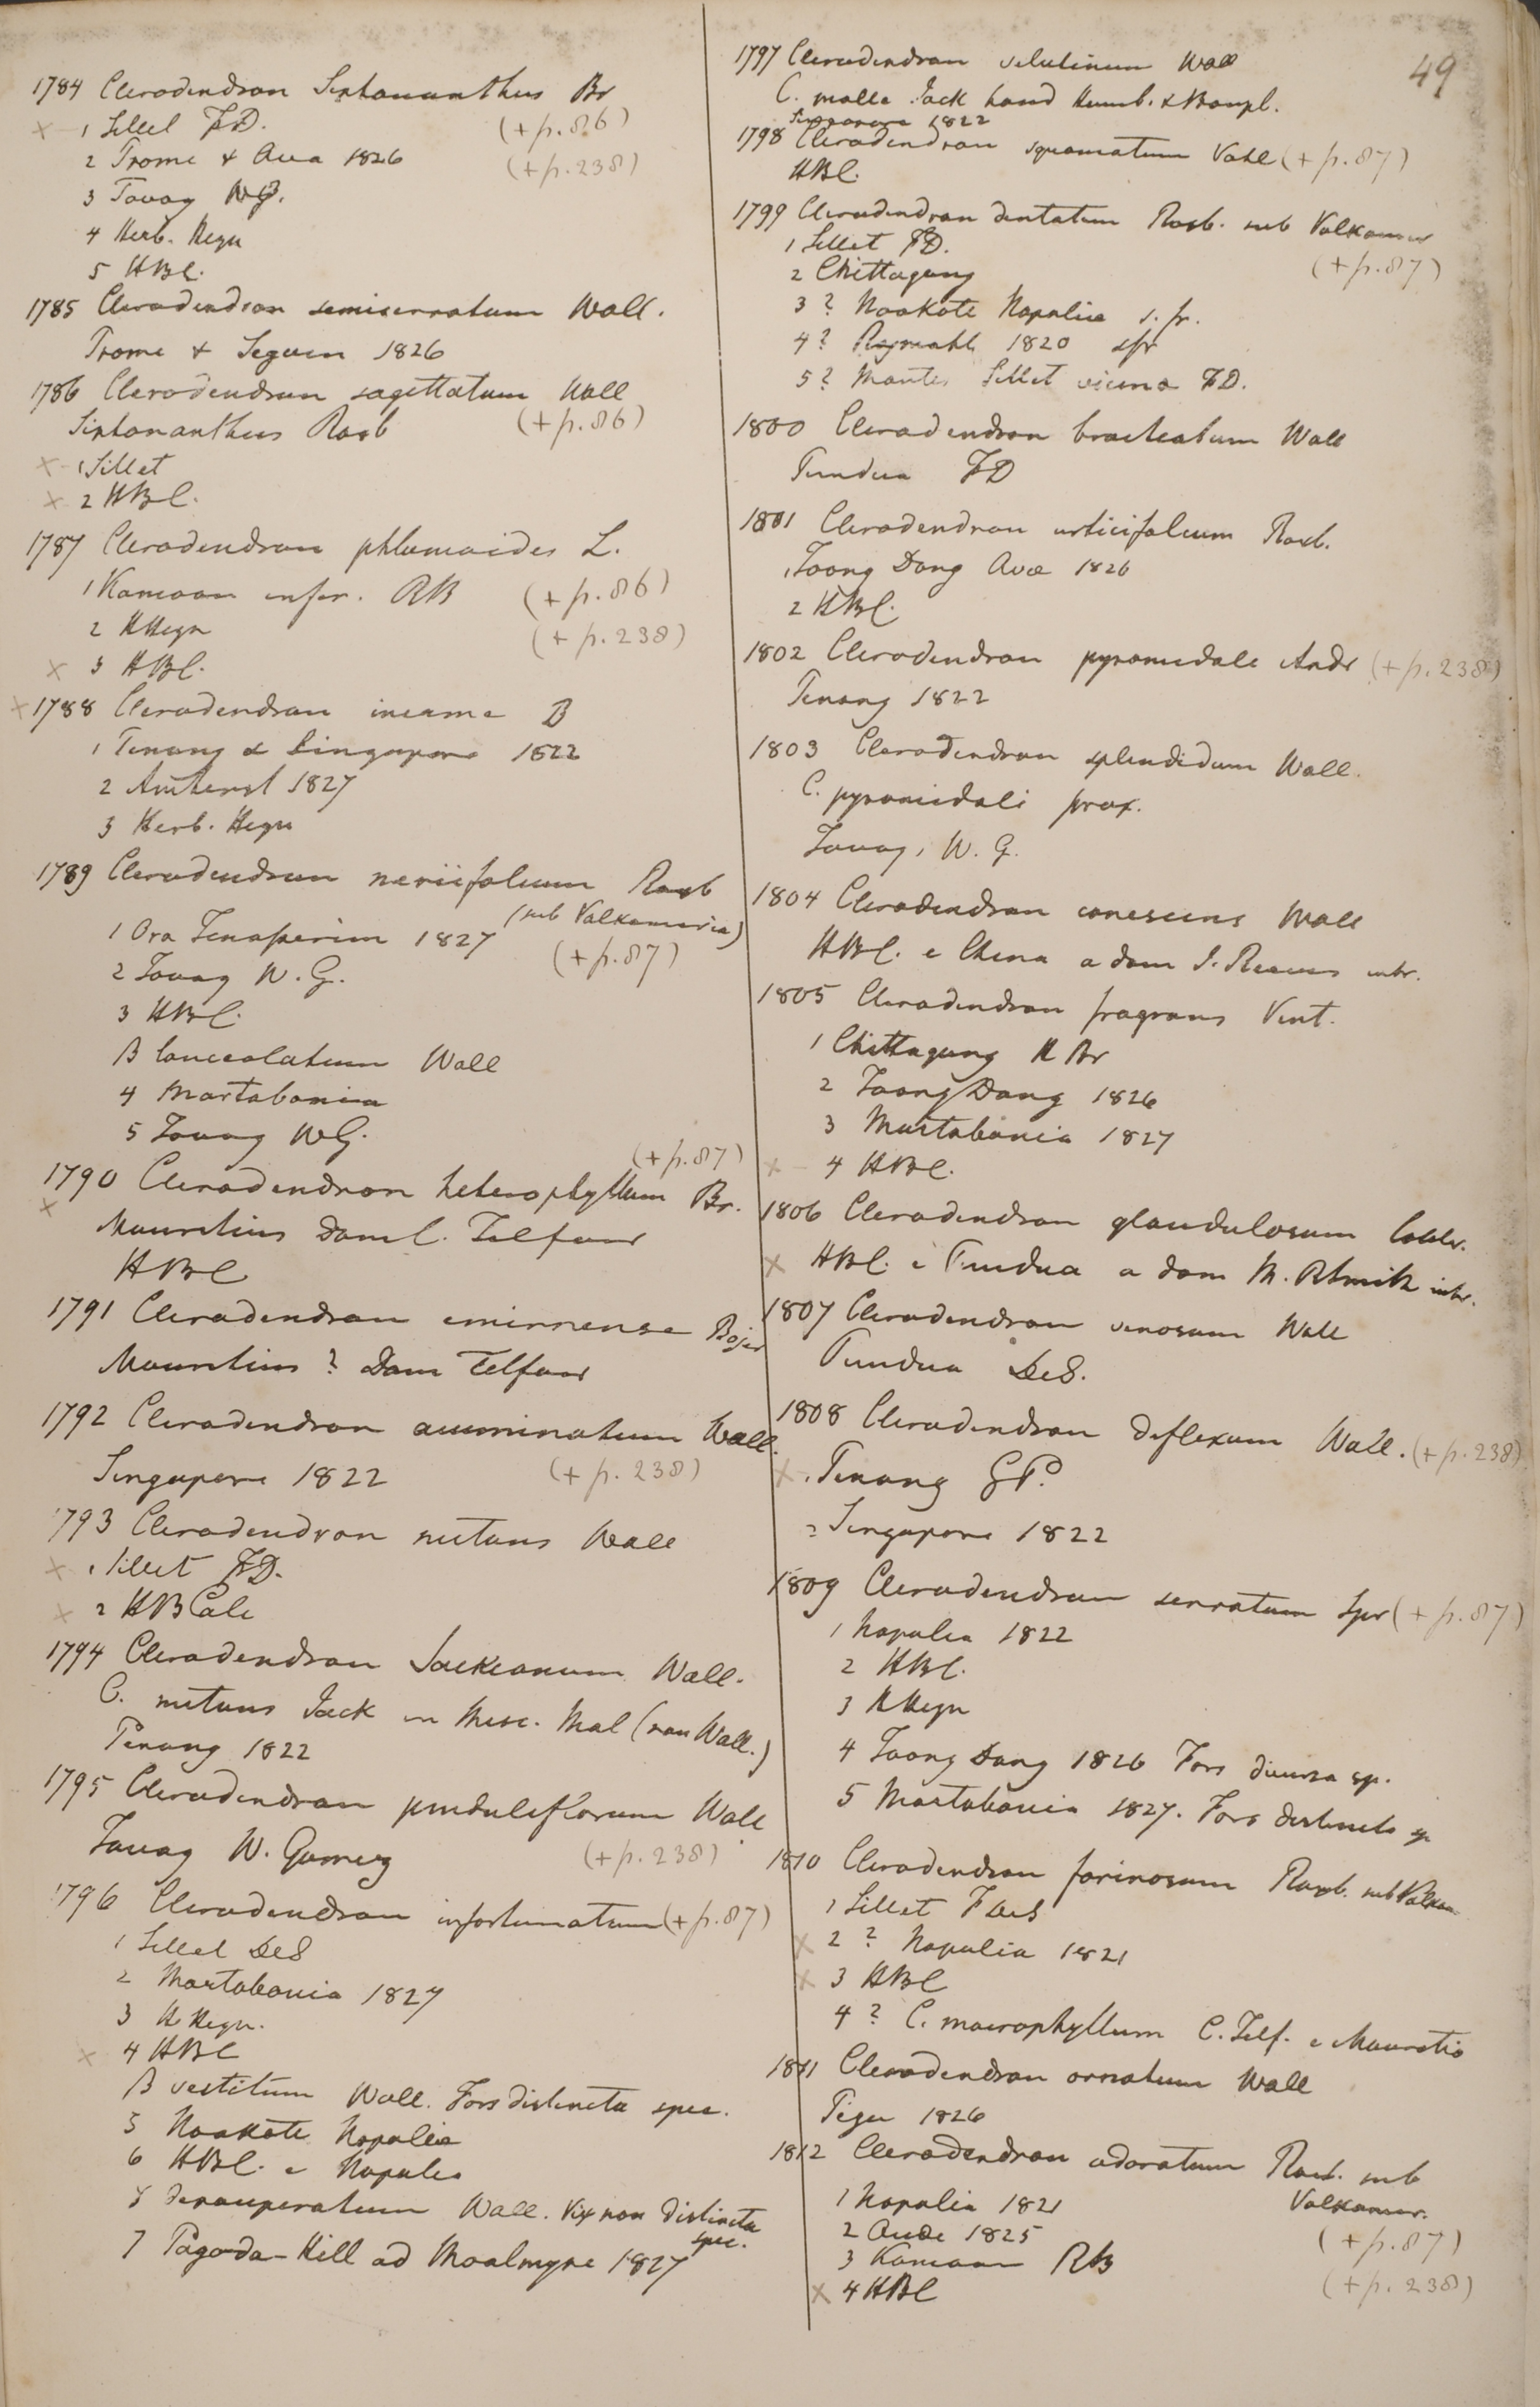 49
1784 Clerodendron Siphonanthus Br
× 1 Sillet FD. (+p.86)
2 Prome & Ava 1826 (+p.238)
3 Tavoy WG.
4 Herb. Heyn
5 HBC.
1785 Clerodendron semiserratum Wall.
Prome & Seguen 1826
1786 Clerodendron sagittatum Wall
Siphonanthus Roxb (+p.86)
× 1 Sillet
× 2 HBC.
1787 Clerodendron phlomoides L.
1 Kamoon infer. RB (+p.86)
2 HHeyn (+p.238)
× 3 HBC.
× 1788 Clerodendron inerme B
1 Penang & Singapore 1822
2 Amherst 1827
3 Herb. Heyn
1789 Clerodendron neriifolium Roxb
(sub Volkameria)
1 Ora Tenasserim 1827 (+p.87)
2 Tavoy W.G.
3 HBC.
β lanceolatum Wall
4 Martabania
5 Tavoy WG.
(+p.87)
1790 Clerodendron heterophyllum Br.
× Mauritius Dom C. Telfair
HBC
1791 Clerodendron emirnense Bojer
Mauritius? Dom Telfair
1792 Clerodendron acuminatum Wall.
Singapore 1822 (+p.238)
1793 Clerodendron nutans Wall
× 1 Sillet FD.
× 2 HBCalc
1794 Clerodendron Jackianum Wall.
C. nutans Jack in Misc. Mal (non Wall.)
Penang 1822
1795 Clerodendron penduliflorum Wall
Tavoy W. Gomez (+p.238)
1796 Clerodendron infortunatum (+p.87)
1 Sillet DeS
2 Martabania 1827
3 H. Heyn.
× 4 HBC
β vestitum Wall. Fors distincta spec.
5 Noakote Napalia
6 HBC. e Napalia
γ depauperatum Wall. Vix non distincta
spec.
7 Pagoda-Hill ad Moalmyne 1827
1797 Clerodendron velutinum Wall
C. molle Jack haud Humb. & Bonpl.
Singapore 1822
1798 Clerodendron squamatum Vahl (+p.87)
HBC.
1799 Clerodendron dentatum Roxb. sub Volkamer
1 Sillet FD. (+p.87)
2 Chittagong
3 ? Noakote Napalia s. fr.
4 ? 1820 sfr
5 ? Montes Sillet vicina FD.
1800 Clerodendron bracteatum Wall
Pundua FD
1801 Clerodendron urticifolium Roxb.
1 Toong Dong Avae 1826
2 HBC.
1802 Clerodendron pyramidale Andr (+p.238)
Penang 1822
1803 Clerodendron splendidum Wall.
C. pyramidali prox.
Tavoy, W.G.
1804 Clerodendron canescens Wall
HBC. e China a dom J. Reeves intr.
1805 Clerodendron fragrans Vent.
1 Chittagong H Br
2 Toong Dong 1826
3 Martabania 1827
× 4 HBC.
1806 Clerodendron glandulosum Colebr.
× HBC. e Pundua a dom M. R Smith intr.
1807 Clerodendron venosum Wall
Pundua DeS.
1808 Clerodendron deflexum Wall. (+p.238)
× 1 Penang GP.
2 Singapore 1822
1809 Clerodendron serratum Spr (+p.87)
1 Napalia 1822
2 HBC.
3 HHeyn
4 Toong Dong 1826 Fors diversa sp.
5 Martabania 1827. Fors distincta sp
1810 Clerodendron farinosum Roxb. sub Volkam
1 Sillet F DeS
× 2 ? Napalia 1821
× 3 HBC
4 ? C. macrophyllum C. Telf. e Mauritio
1811 Clerodendron ornatum Wall
Pegu 1826
1812 Clerodendron odoratum Roxb. sub
Volkamer.
1 Napalia 1821
2 Oude 1825 (+p.87)
3 Kamaon RB
× 4 HBC (+p.238)